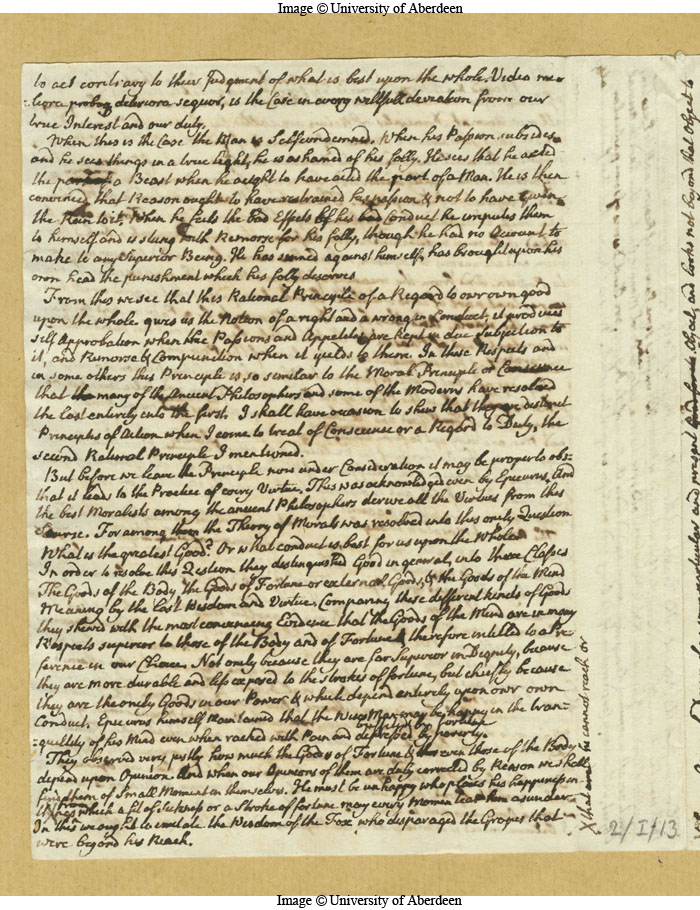 Image © University of Aberdeen
to act contrary to their Judgment of what is best upon the whole. Video me-
liora proboq deteriora sequor, is the Case in every willfull deviation from our
true Interest and our duty.
When this is the Case the Man is Selfcondemned. When his Passion subsides
and he sees things in a true light, he is ashamed of his folly. He sees that he acted
the part of a Beast when he ought to have acted the part of a Man. He is then
convinced that Reason ought to have restrained his passion & not to have given
the Rein to it. When he feels the bad Effects of his bad Conduct he imputes them
to himself and is stung with Remorse for his folly, though he had no Account to
make to any Superior Being. He has sinned against himself, has brought upon his
own head the punishment which his folly deserves
From this we see that this Rational Principle of a Regard to our own good
upon the whole gives us the Notion of a right and a wrong in Conduct, it produces
self Approbation when the Passions and Appetites are kept in due Subjection to
it, and Remorse & Compunction when it yields to them. In these Respects and
in some others this Principle is so similar to the Moral Principle or Conscience
that many of the Ancient Philosophers and some of the Moderns have resolved
the last entirely into the first. I shall have occasion to shew that they are distinct
Principles of Action when I come to treat of Conscience or a Regard to Duty, the
second Rational Principle I mentioned.
But before we leave the Principle now under Consideration it may be proper to obs:
that it leads to the Practice of every Virtue. This was acknowledged even by Epicurus. And
the best Moralists among the ancient Philosophers derive all the Virtues from this
Source. For among them the Theory of Morals was resolved into this onely Question
What is the greatest Good? Or what conduct is best for us upon the Whole?
In order to resolve this Qestion they distinguished Good in general, into three Classes
The Goods of the Body, the Goods of Fortune or external Goods, & the Goods of the Mind
Meaning by the last Wisdom and Virtue. Comparing these different kinds of Goods
they shewed with the most convincing Evidence that the Goods of the Mind are in many
Respects superior to those of the Body and of Fortune & therefore intitled to a Pre-
ference in our Choice. Not onely because they are far Superior in Dignity, because
they are more durable and less exposed to the Strokes of fortune, but chiefly because
they are the onely Goods in our Power & which depend entirely upon our own
Conduct. Epicurus himself Maintained that the Wise Man may be happy in the tran-
quillity of his Mind even when racked with Pain and depressed by poverty.
They observed very justly how much the Goods of Fortune & even those of the Body
depend upon Opinion. And when our Opinions of them are duly corrected by Reason we shall
find them of Small Moment in themselves. He must be unhappy who places his happiness in
things which a fit of sickness or a Stroke of fortune may every Moment tear him asunder
In this we ought to imitate the Wisdom of the Fox who disparaged the Grapes that
were beyond his Reach.
he cannot reach or
2/I/13
Object, and looks not beyond that Object to
Image © University of Aberdeen